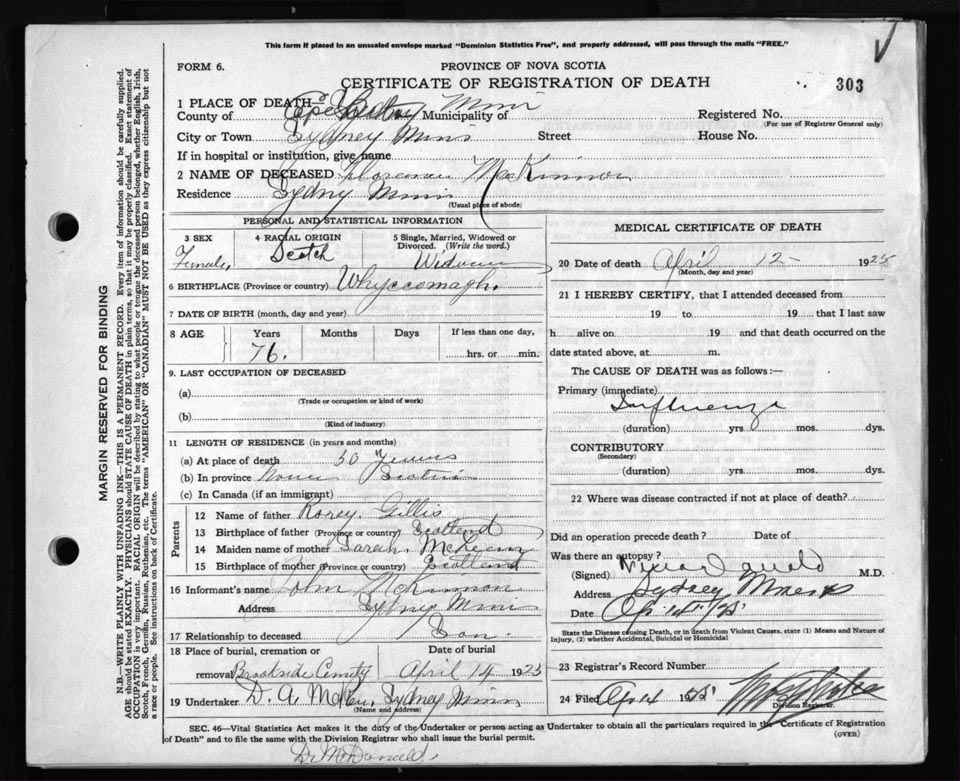 This form if placed in an unsealed envelope marked "Dominion Statistics Free", and properly addressed, will pass through the mails "FREE."
FORM 6.
PROVINCE OF NOVA SCOTIA
CERTIFICATE OF REGISTRATION OF DEATH
303
1 PLACE OF DEATH
County of Cape Breton Municipality of
Registered No.
(For use of Registrar General only)
City or Town Sydney Mines Street House No.
If in hospital or institution, give name
2 NAME OF DECEASED MacKinnon
Residence Sydny Mines
(Usual place of abode)
PERSONAL AND STATISTICAL INFORMATION
3 SEX
Female,
4 RACIAL ORIGIN
Scotch
5 Single, Married, Widowed or Divorced. (Write the word.)
Widow
6 BIRTHPLACE (Province or country) Whycocomagh.
7 DATE OF BIRTH (month, day and year)
8 AGE Years Months Days If less than one day,
76. hrs. or min.
9. LAST OCCUPATION OF DECEASED
(a)
(Trade or occupation or kind of work)
(b)
(Kind of industry)
11 LENGTH OF RESIDENCE (in years and months)
(a) At place of death 50 years
(b) In province Nova Scotia
(c) In Canada (if an immigrant)
Parents
12 Name of father Rorey. Gillis
13 Birthplace of father (Province or country) Scotland
14 Maiden name of mother Sarah.
15 Birthplace of mother (Province or country) Scotland
16 Informant's name John McKinnon
Address Sydny Mines
17 Relationship to deceased Son.
18 Place of burial, cremation or removal Date of burial
Brookside Cemety April 14 1925
19 Undertaker D. A. Sydney Mines
(Name and address)
MEDICAL CERTIFICATE OF DEATH
20 Date of death April 12- 1925
(Month, day and year)
21 I HEREBY CERTIFY, that I attended deceased from
19 to 19 that I last saw
h alive on 19 and that death occurred on the
date stated above, at m.
The CAUSE OF DEATH was as follows:—
Primary (immediate)
Influenza
(duration) yrs. mos. dys.
CONTRIBUTORY
(Secondary)
(duration) yrs. mos. dys.
22 Where was disease contracted if not at place of death?
Did an operation precede death? Date of
Was there an autopsy?
(Signed) M.D.
Address Sydney Mines
Date
State the Disease causing Death, or in death from Violent Causes, state (1) Means and Nature of Injury, (2) whether Accidental, Suicidal or Homicidal
23 Registrar's Record Number
24 Filed 1925
Division Registrar.
SEC. 46—Vital Statistics Act makes it the duty of the Undertaker or person acting as Undertaker to obtain all the particulars required in the Certificate of Registration of Death" and to file the same with the Division Registrar who shall issue the burial permit.
(OVER)
Dr McDonald
MARGIN RESERVED FOR BINDING
N.B.—WRITE PLAINLY WITH UNFADING INK—THIS IS A PERMANENT RECORD. Every item of information should be carefully supplied.
AGE should be stated EXACTLY. PHYSICIANS should STATE CAUSE OF DEATH in plain terms, so that it may be properly classified. Exact statement of
OCCUPATION is very important. RACIAL ORIGIN will be described by stating to what people or tongue the deceased person belonged, whether English, Irish,
Scotch, French, German, Russian, Ruthenian, etc. The terms "AMERICAN" or "CANADIAN" MUST NOT BE USED as they express citizenship but not
a race or people. See instructions on back of Certificate.